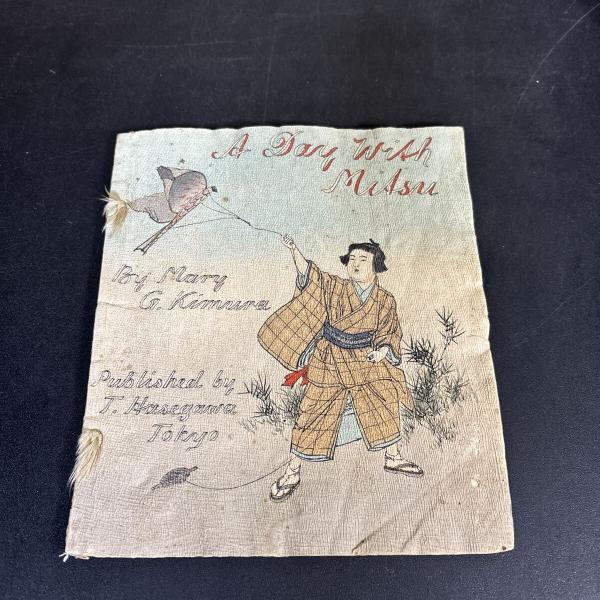 A Day With
Mitsu
By Mary
G. Kimura
Published by
T. Hasegawa
Tokyo